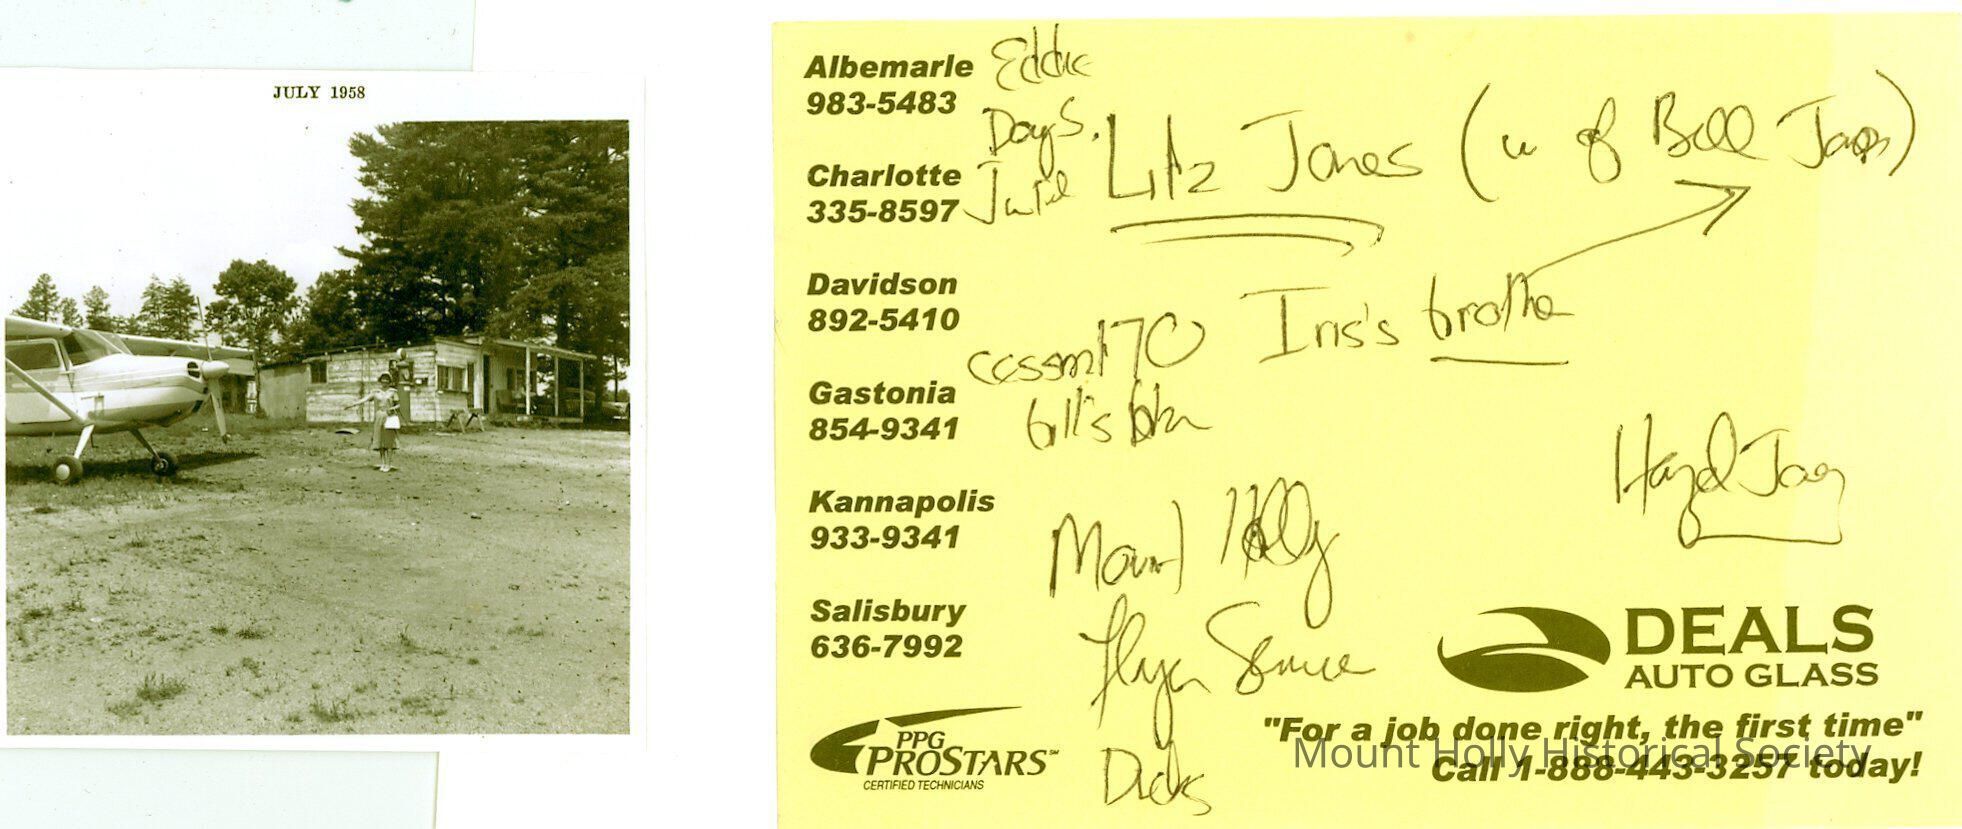 JULY 1958
Albemarle
983-5483
Charlotte
335-8597
Davidson
892-5410
Gastonia
854-9341
Kannapolis
933-9341
Salisbury
636-7992
Eddie
Litz Jones (w of Bill Jones)
Iris's brother
170
bill's
Mount Holly
Service
Dicks
PPG
PROSTARS℠
CERTIFIED TECHNICIANS
DEALS
AUTO GLASS
"For a job done right, the first time"
Call 1-888-443-3257 today!
Mount Holly Historical Society